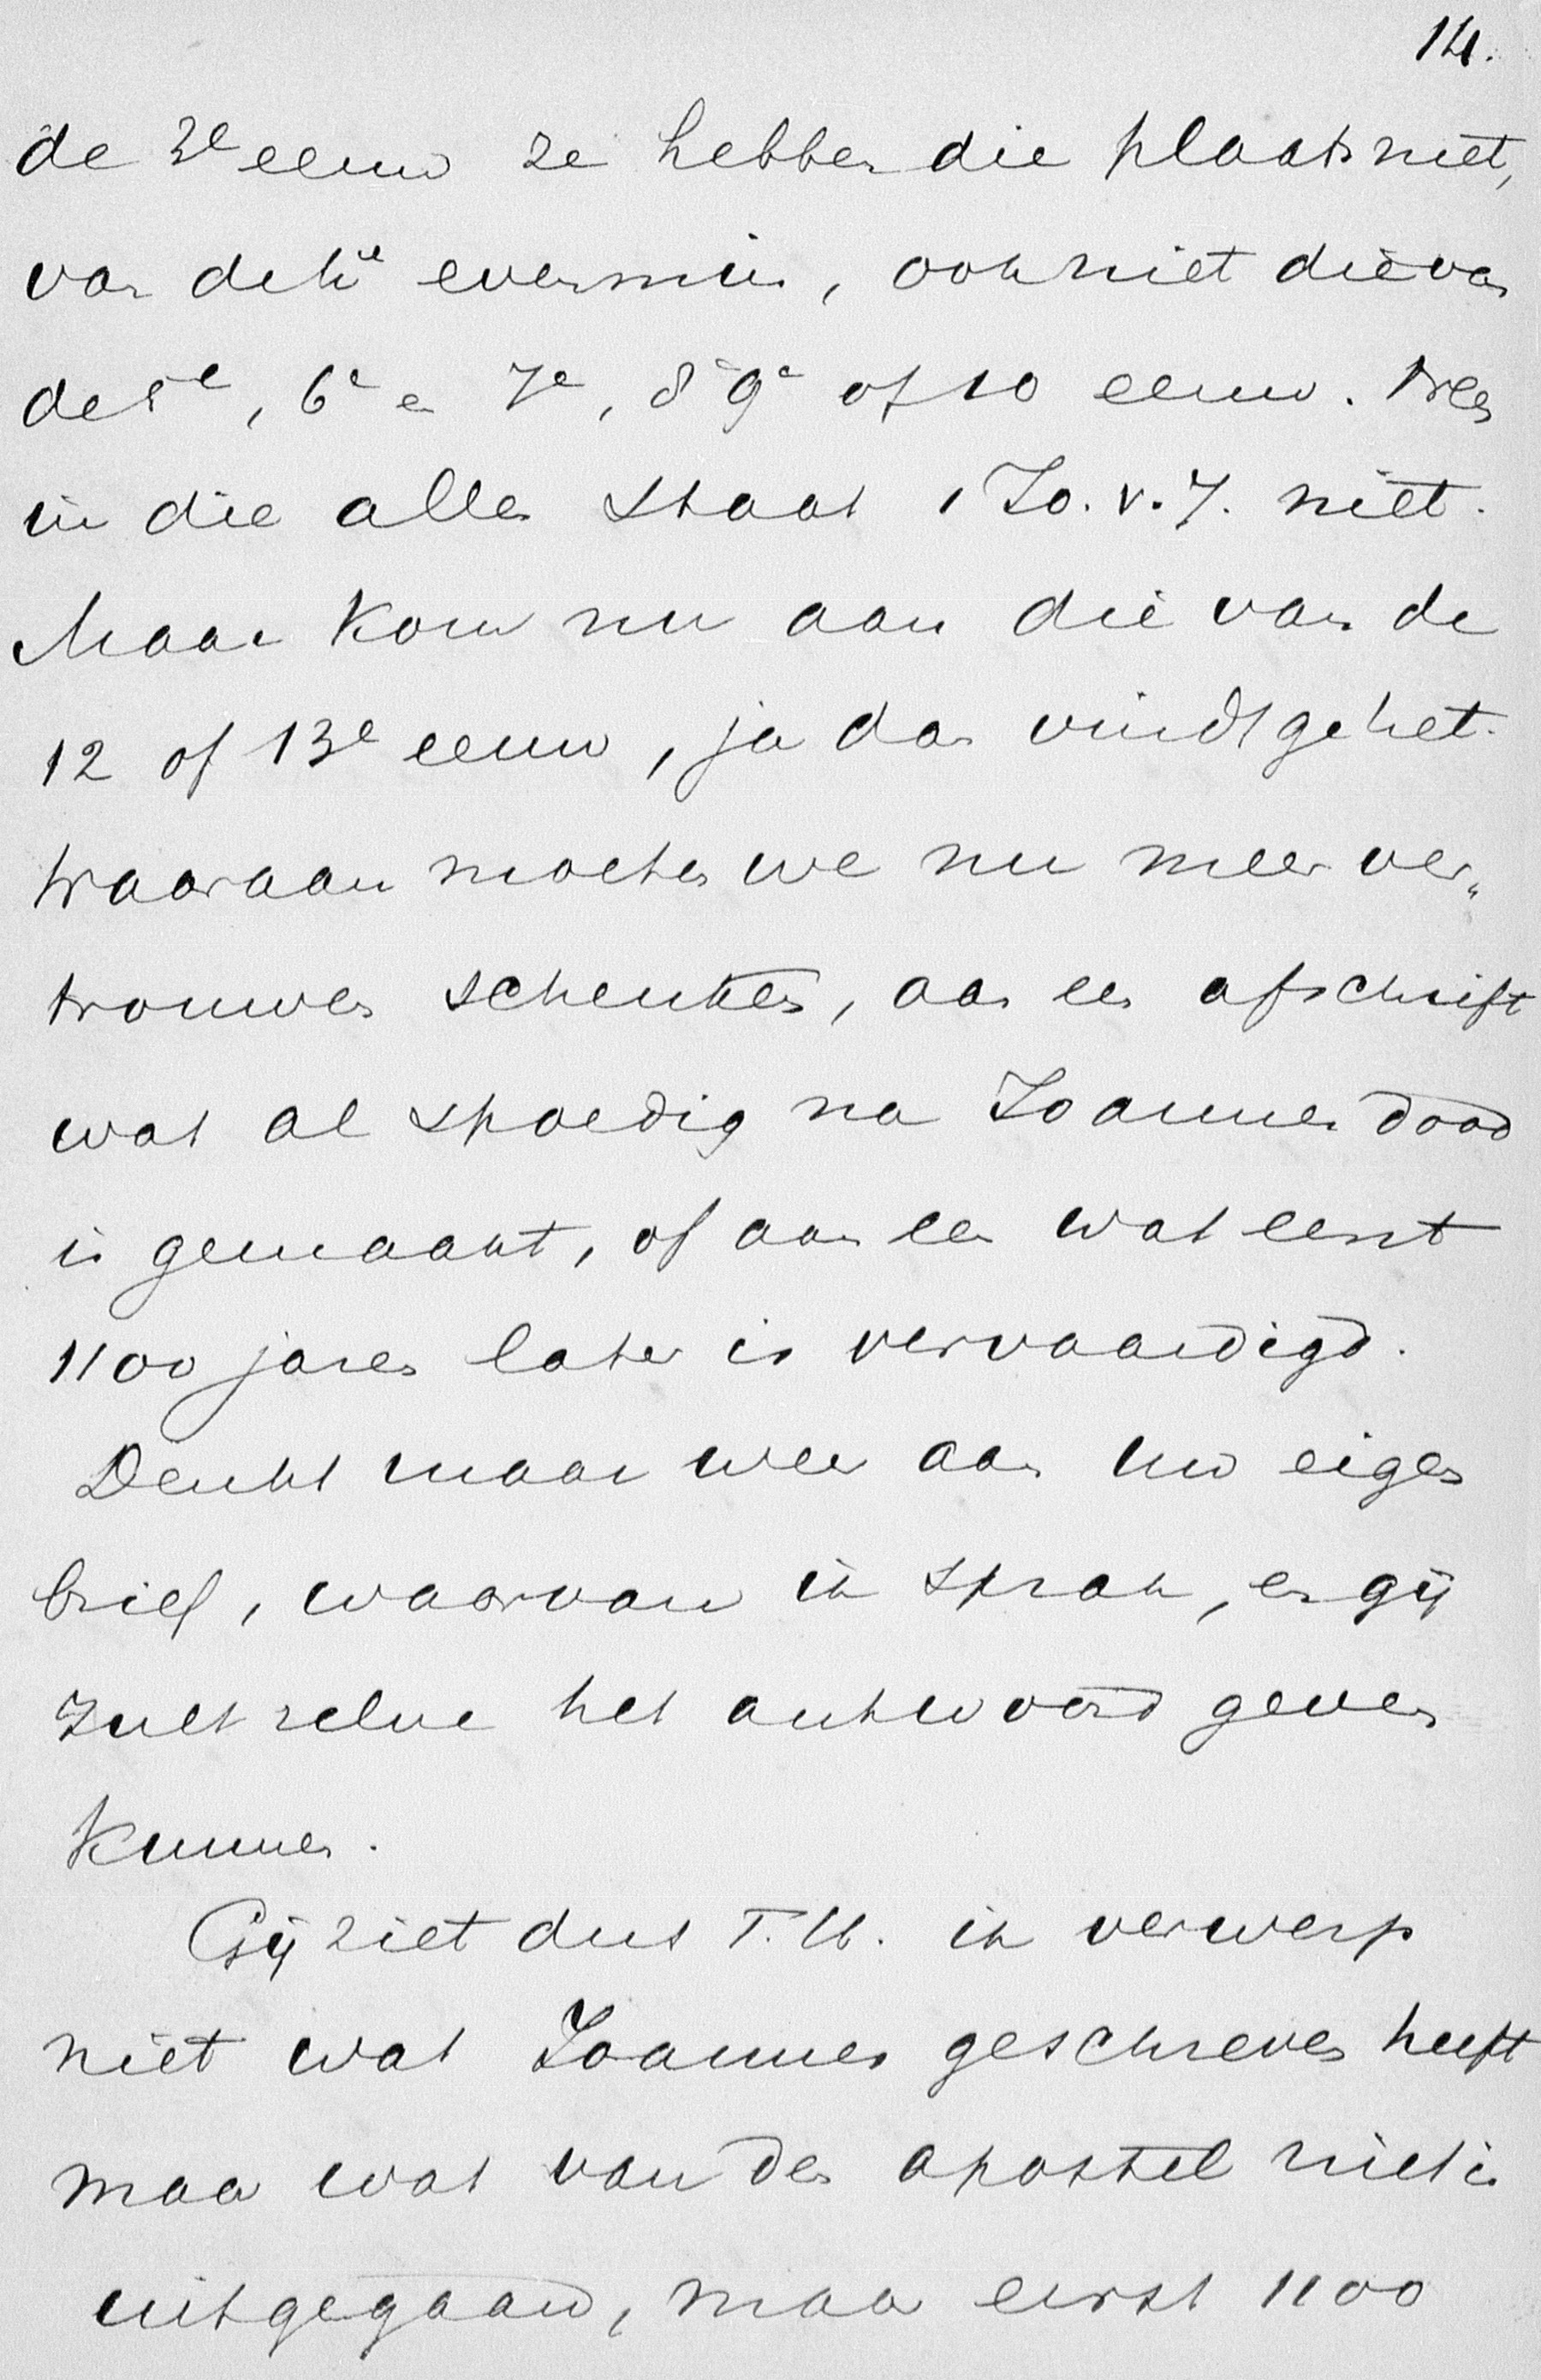 14.
de 3e eeuw ze hebben die plaats niet,
van de 4e evenmin, ook niet die van
de 5e, 6e en 7e, 8e 9e of 10 eeuw. Neen
in die allen staat 1 Jo. v. 7. niet.
Maar kom nu aan die van de
12 of 13e eeuw, ja dan vindt ge het.
Waaraan moeten we nu meer ver„
trouwen schenken, aan een afschrift
wat al spoedig na Joannes dood
is gemaakt, of aan een wat eerst
1100 jaren later is vervaardigd.
Denkt maar weer aan uw eigen
brief, waarvan ik sprak, en gij
zult zelve het antwoord geven
kunnen.
Gij ziet dus T. ik verwerp
niet wat Joannes geschreven heeft
maar wat van den apostel niet is
uitgegaan, maar eerst 1100